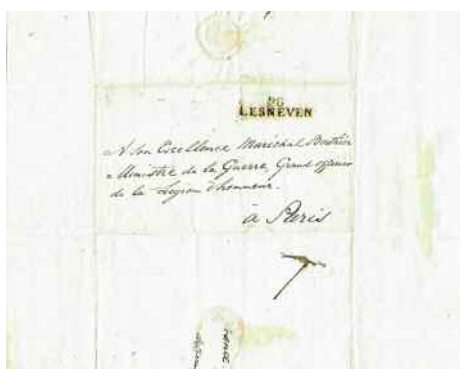 28
LESNEVEN
A Son Excellence Maréchal Berthier
Ministre de la Guerre, Grand officier
de la Legion d'honneur.
à Paris